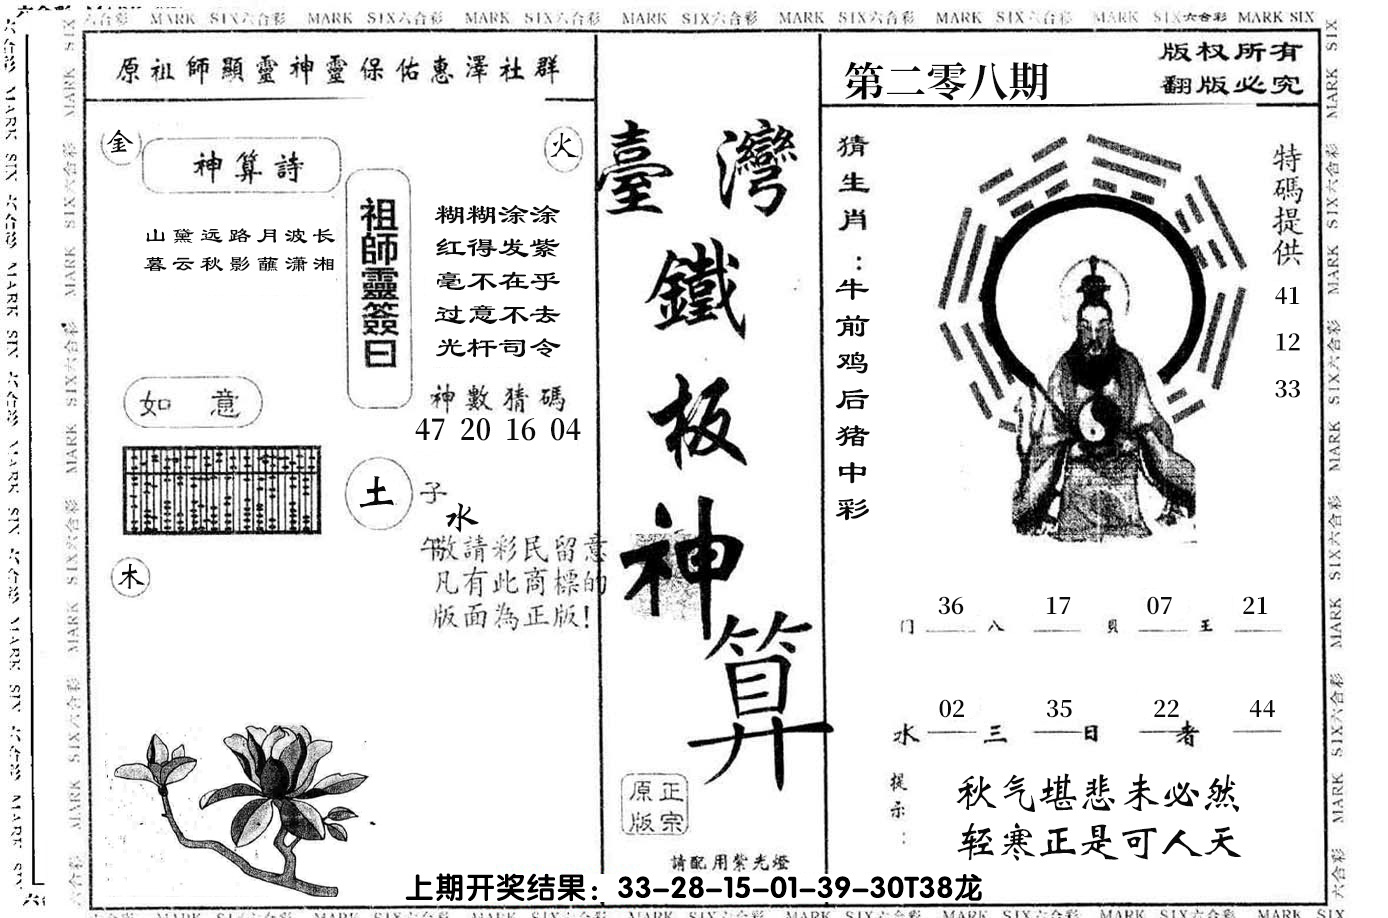 MARK SIX六合彩 MARK SIX六合彩 MARK SIX六合彩 MARK SIX六合彩 MARK SIX六合彩 MARK SIX六合彩 MARK SIX六合彩 MARK SIX
原祖師顯靈神靈保佑惠澤社群
金
神算詩
火
山黛远路月波长
暮云秋影蘸潇湘
祖師靈簽曰
糊糊涂涂
红得发紫
毫不在乎
过意不去
光杆司令
神數猜碼
47 20 16 04
如 意
土
子
水
午
木
敬請彩民留意
凡有此商標的
版面為正版!
臺灣
鐵
板
神
算
正宗
原版
請配用紫光燈
第二零八期
版权所有
翻版必究
猜生肖:牛前鸡后猪中彩
特碼提供
41
12
33
门 36 八 17 貝 07 王 21
水 02 三 35 日 22 者 44
提示:
秋气堪悲未必然
轻寒正是可人天
上期开奖结果：33-28-15-01-39-30T38龙